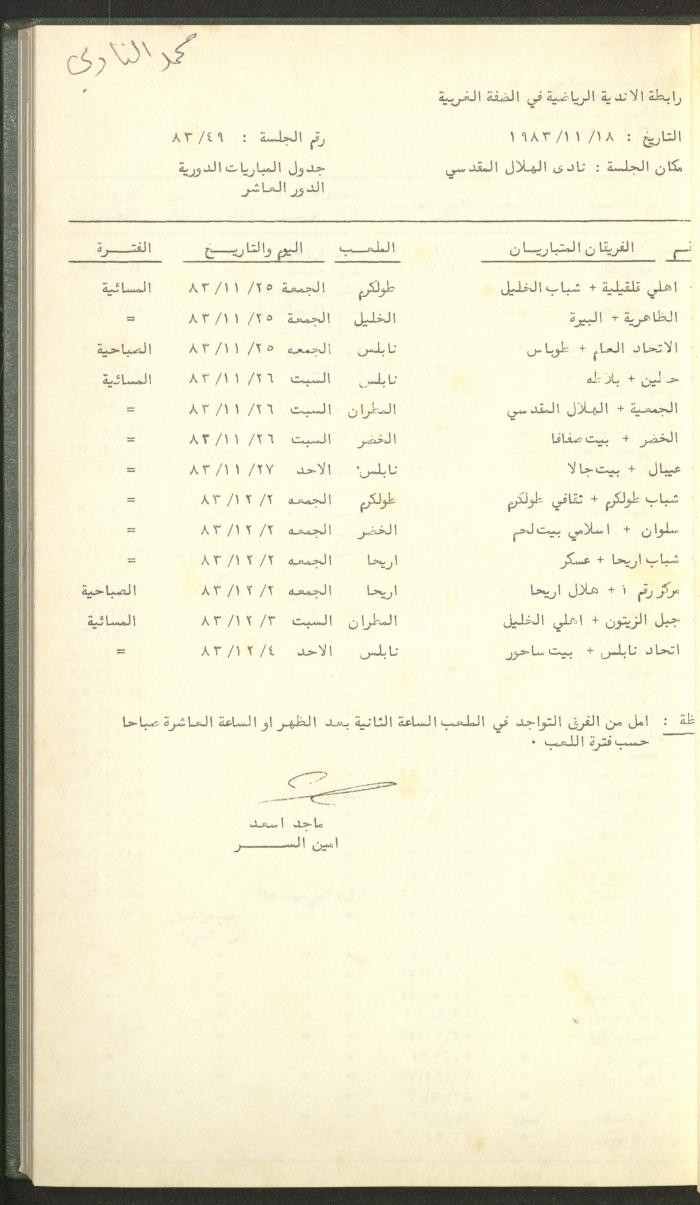 محمد النادي
رابطة الاندية الرياضية في الضفة الغربية
التاريخ : ١٩٨٣/١١/١٨ رقم الجلسة : ٨٣/٤٩
مكان الجلسة : نادى الهلال المقدسي جدول المباريات الدورية
الدور العاشر
الفريقان المتباريان الملعب اليوم والتاريخ الفترة
اهلي قلقيلية + شباب الخليل طولكرم الجمعة ٨٣/١١/٢٥ المسائية
الظاهرية + البيرة الخليل الجمعة ٨٣/١١/٢٥ =
الاتحاد العام + طوباس نابلس الجمعه ٨٣/١١/٢٥ الصباحية
حطين + بلاطه نابلس السبت ٨٣/١١/٢٦ المسائية
الجمعية + الهلال المقدسي المطران السبت ٨٣/١١/٢٦ =
الخضر + بيت صفافا الخضر السبت ٨٣/١١/٢٦ =
عيبال + بيت جالا نابلس الاحد ٨٣/١١/٢٧ =
شباب طولكرم + ثقافي طولكرم طولكرم الجمعه ٨٣/١٢/٢ =
سلوان + اسلامي بيت لحم الخضر الجمعه ٨٣/١٢/٢ =
شباب اريحا + عسكر اريحا الجمعه ٨٣/١٢/٢ =
مركز رقم ١ + هلال اريحا اريحا الجمعه ٨٣/١٢/٢ الصباحية
جبل الزيتون + اهلي الخليل المطران السبت ٨٣/١٢/٣ المسائية
اتحاد نابلس + بيت ساحور نابلس الاحد ٨٣/١٢/٤ =
ظة : امل من الفرق التواجد في الملعب الساعة الثانية بعد الظهر او الساعة العاشرة صباحا
حسب فترة اللعب ٠
ماجد اسعد
امين الســـر